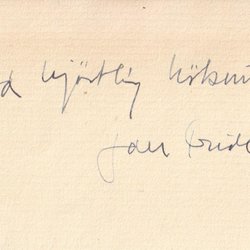 d hjärtlig hälsni
Jan